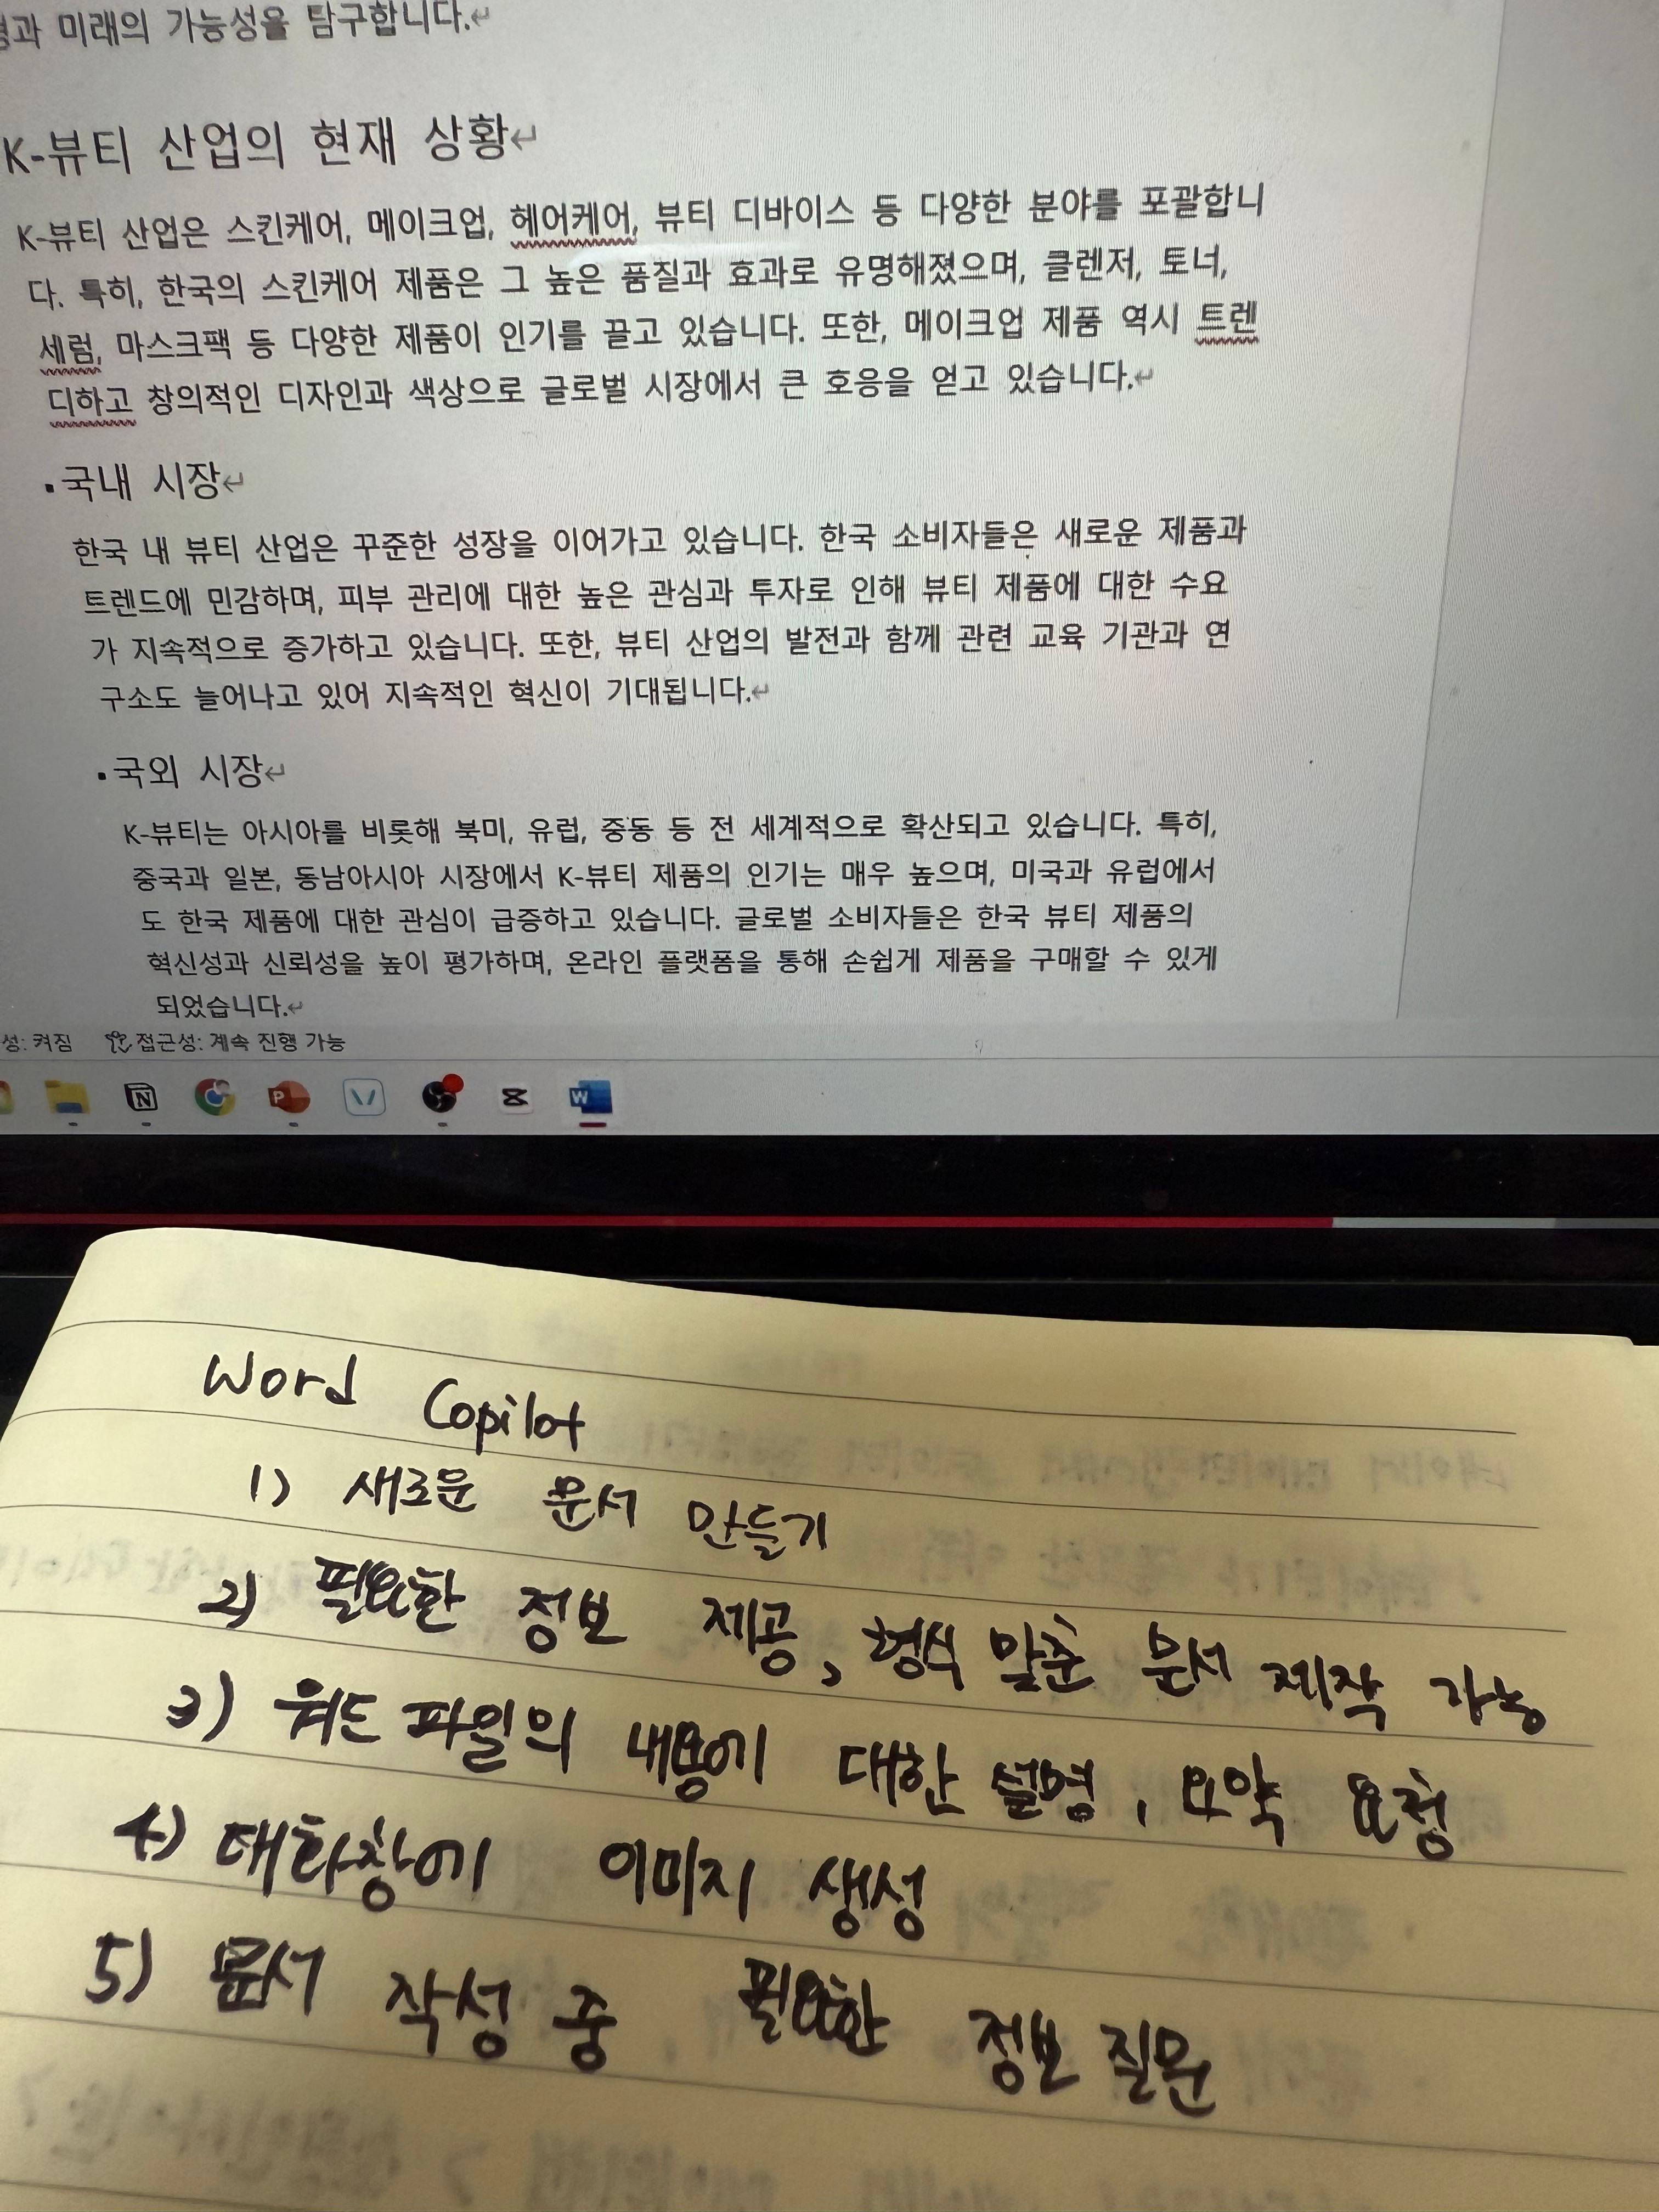 과 미래의 가능성을 탐구합니다.
K-뷰티 산업의 현재 상황
K-뷰티 산업은 스킨케어, 메이크업, 헤어케어, 뷰티 디바이스 등 다양한 분야를 포괄합니
다. 특히, 한국의 스킨케어 제품은 그 높은 품질과 효과로 유명해졌으며, 클렌저, 토너,
세럼, 마스크팩 등 다양한 제품이 인기를 끌고 있습니다. 또한, 메이크업 제품 역시 트렌
디하고 창의적인 디자인과 색상으로 글로벌 시장에서 큰 호응을 얻고 있습니다.
▪국내 시장
한국 내 뷰티 산업은 꾸준한 성장을 이어가고 있습니다. 한국 소비자들은 새로운 제품과
트렌드에 민감하며, 피부 관리에 대한 높은 관심과 투자로 인해 뷰티 제품에 대한 수요
가 지속적으로 증가하고 있습니다. 또한, 뷰티 산업의 발전과 함께 관련 교육 기관과 연
구소도 늘어나고 있어 지속적인 혁신이 기대됩니다.
▪국외 시장
K-뷰티는 아시아를 비롯해 북미, 유럽, 중동 등 전 세계적으로 확산되고 있습니다. 특히,
중국과 일본, 동남아시아 시장에서 K-뷰티 제품의 인기는 매우 높으며, 미국과 유럽에서
도 한국 제품에 대한 관심이 급증하고 있습니다. 글로벌 소비자들은 한국 뷰티 제품의
혁신성과 신뢰성을 높이 평가하며, 온라인 플랫폼을 통해 손쉽게 제품을 구매할 수 있게
되었습니다.
성: 켜짐 접근성: 계속 진행 가능
N P W
Word Copilot
1) 새로운 문서 만들기
2) 필요한 정보 제공, 형식 맞춘 문서 제작 가능
3) 워드 파일의 내용에 대한 설명, 요약 요청
4) 대화창에 이미지 생성
5) 문서 작성 중 필요한 정보 질문